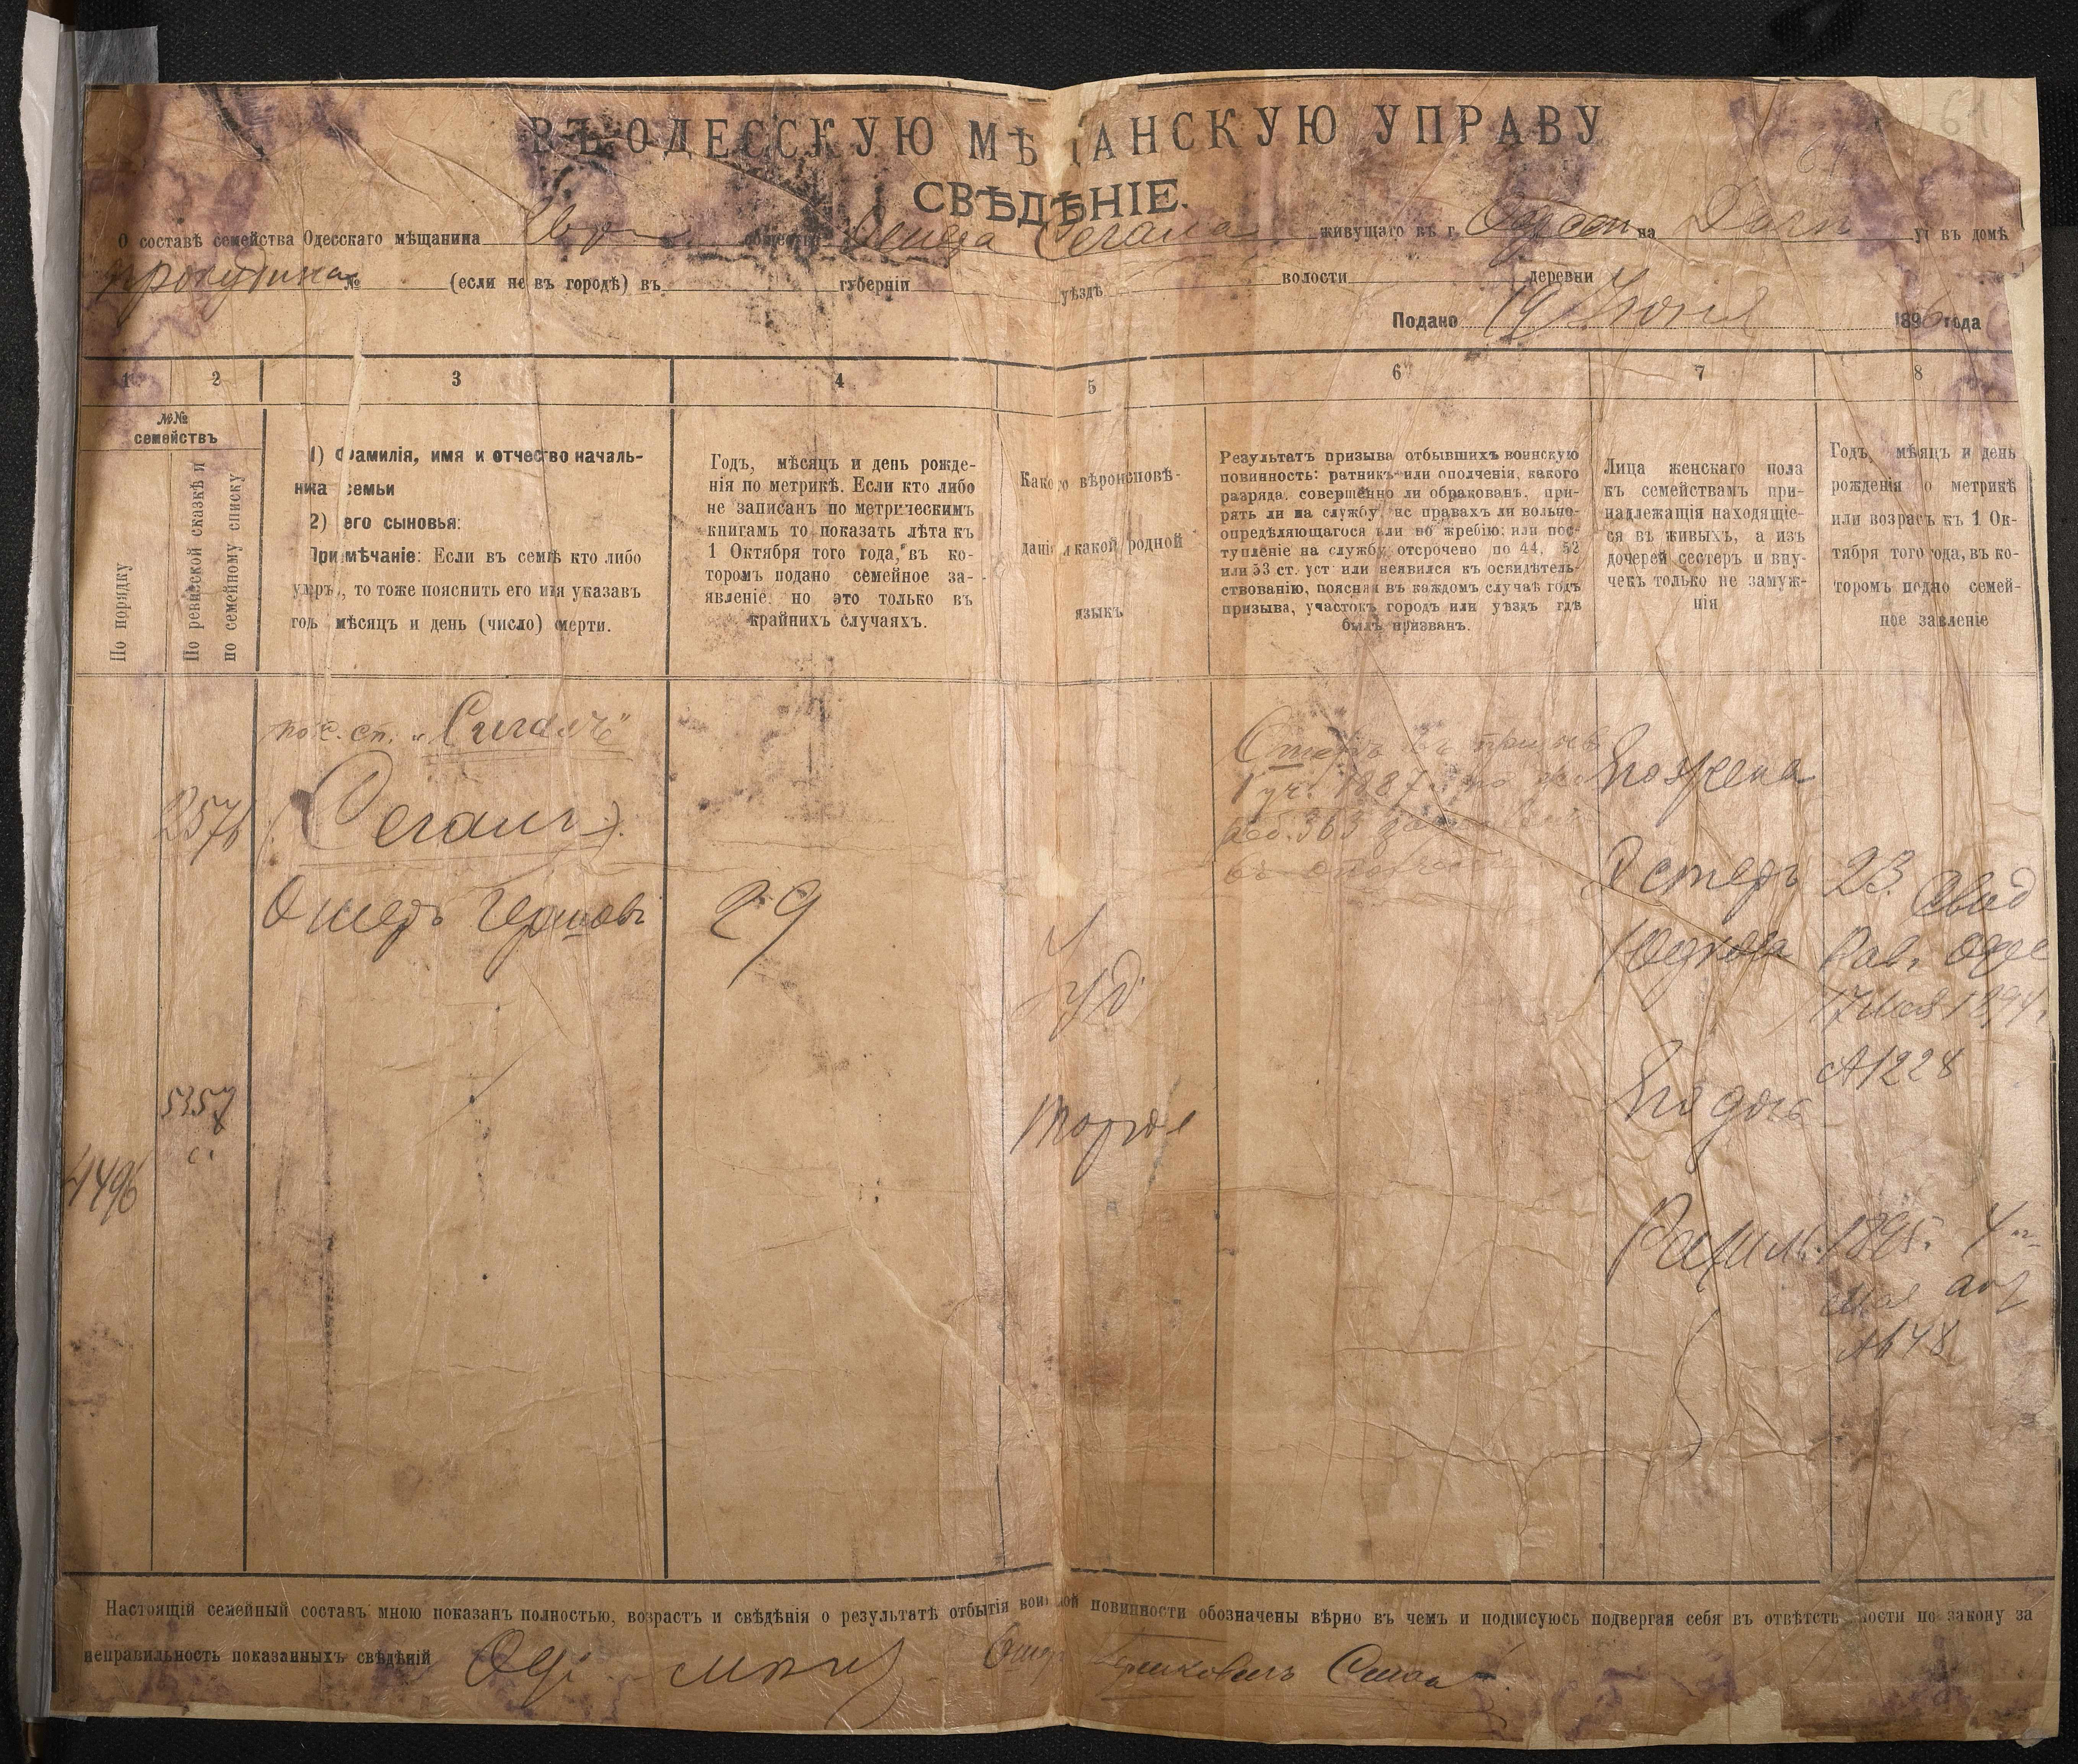 61
ВЪ ОДЕССКУЮ МѢЩАНСКУЮ УПРАВУ
СВѢДѢНІЕ.
О составѣ семейства Одесскаго мѣщанина общества Сегала живущаго въ г. на Дачн ул въ домѣ
№ (если не въ городѣ) въ губерніи уѣздѣ волости деревни
Подано 19 Іюня 1896 года
1 2 3 4 5 6 7 8
№№
семействъ
По порядку
По ревизской сказкѣ и
по семейному списку
1) Фамилія, имя и отчество началь-
ника семьи
2) его сыновья:
Примѣчаніе: Если въ семьѣ кто либо
умръ, то тоже пояснить его имя указавъ
годъ мѣсяцъ и день (число) смерти.
Годъ, мѣсяцъ и день рожде-
нія по метрикѣ. Если кто либо
не записанъ по метрическимъ
книгамъ то показать лѣта къ
1 Октября того года, въ ко-
торомъ подано семейное за-
явленіе, но это только въ
крайнихъ случаяхъ.
Какого вѣроисповѣ-
данія и какой родной
языкъ
Результатъ призыва отбывшихъ воинскую
повинность: ратникъ или ополченія, какого
разряда, совершенно ли обракованъ, при-
рятъ ли на службу, нс правахъ ли вольно-
опредѣляющагося или во жребію; или пос-
тупленіе на службу отсрочено по 44, 52
или 53 ст. уст или неявился къ освидѣтель-
ствованію, поясняя въ каждомъ случаѣ годъ
призыва, участокъ городъ или уѣздъ гдѣ
былъ призванъ.
Лица женскаго пола
къ семействамъ при-
надлежащія находящіе-
ся въ живыхъ, а изъ
дочерей сестеръ и вну-
чекъ только не замуж-
нія
Годъ, мѣсяцъ и день
рожденія по метрикѣ
или возрасъ къ 1 Ок-
тября того года, въ ко-
торомъ подно семей-
ное завленіе
по с. сп. „Сигалъ"
2576 (Сегалъ).
Ошеръ Гершовъ 29
Іуд
5357
4496
1 уч. 1887
363
Его жена
Эстеръ 23 Свид
Рав. Одес
17 1894 г.
№1228
Его дочь
Рахиль 1895. 4
№48
Настоящій семейный составъ мною показанъ полностью, возрастъ и свѣдѣнія о результатѣ отбытія воинской повинности обозначены вѣрно въ чемъ и подписуюсь подвергая себя въ отвѣтственности по закону за
неправильность показанныхъ свѣдѣній Од. мѣщ. Ошер Гершковичъ Сигал